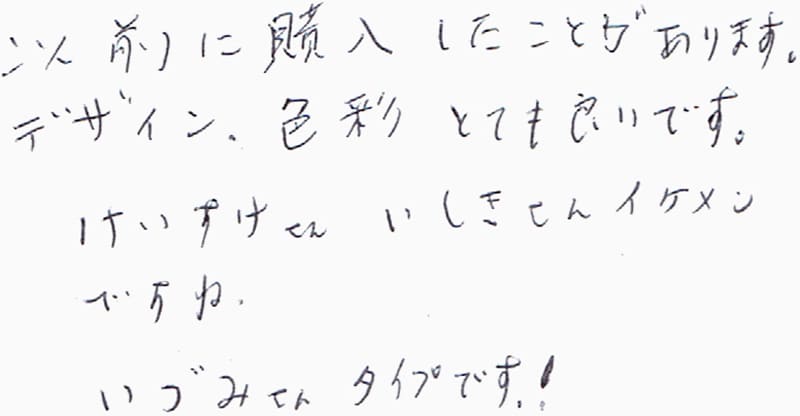 以前に購入したことがあります。
デザイン、色彩 とても良いです。
けいすけさん いしきさんイケメン
ですね.
いづみさん タイプです!